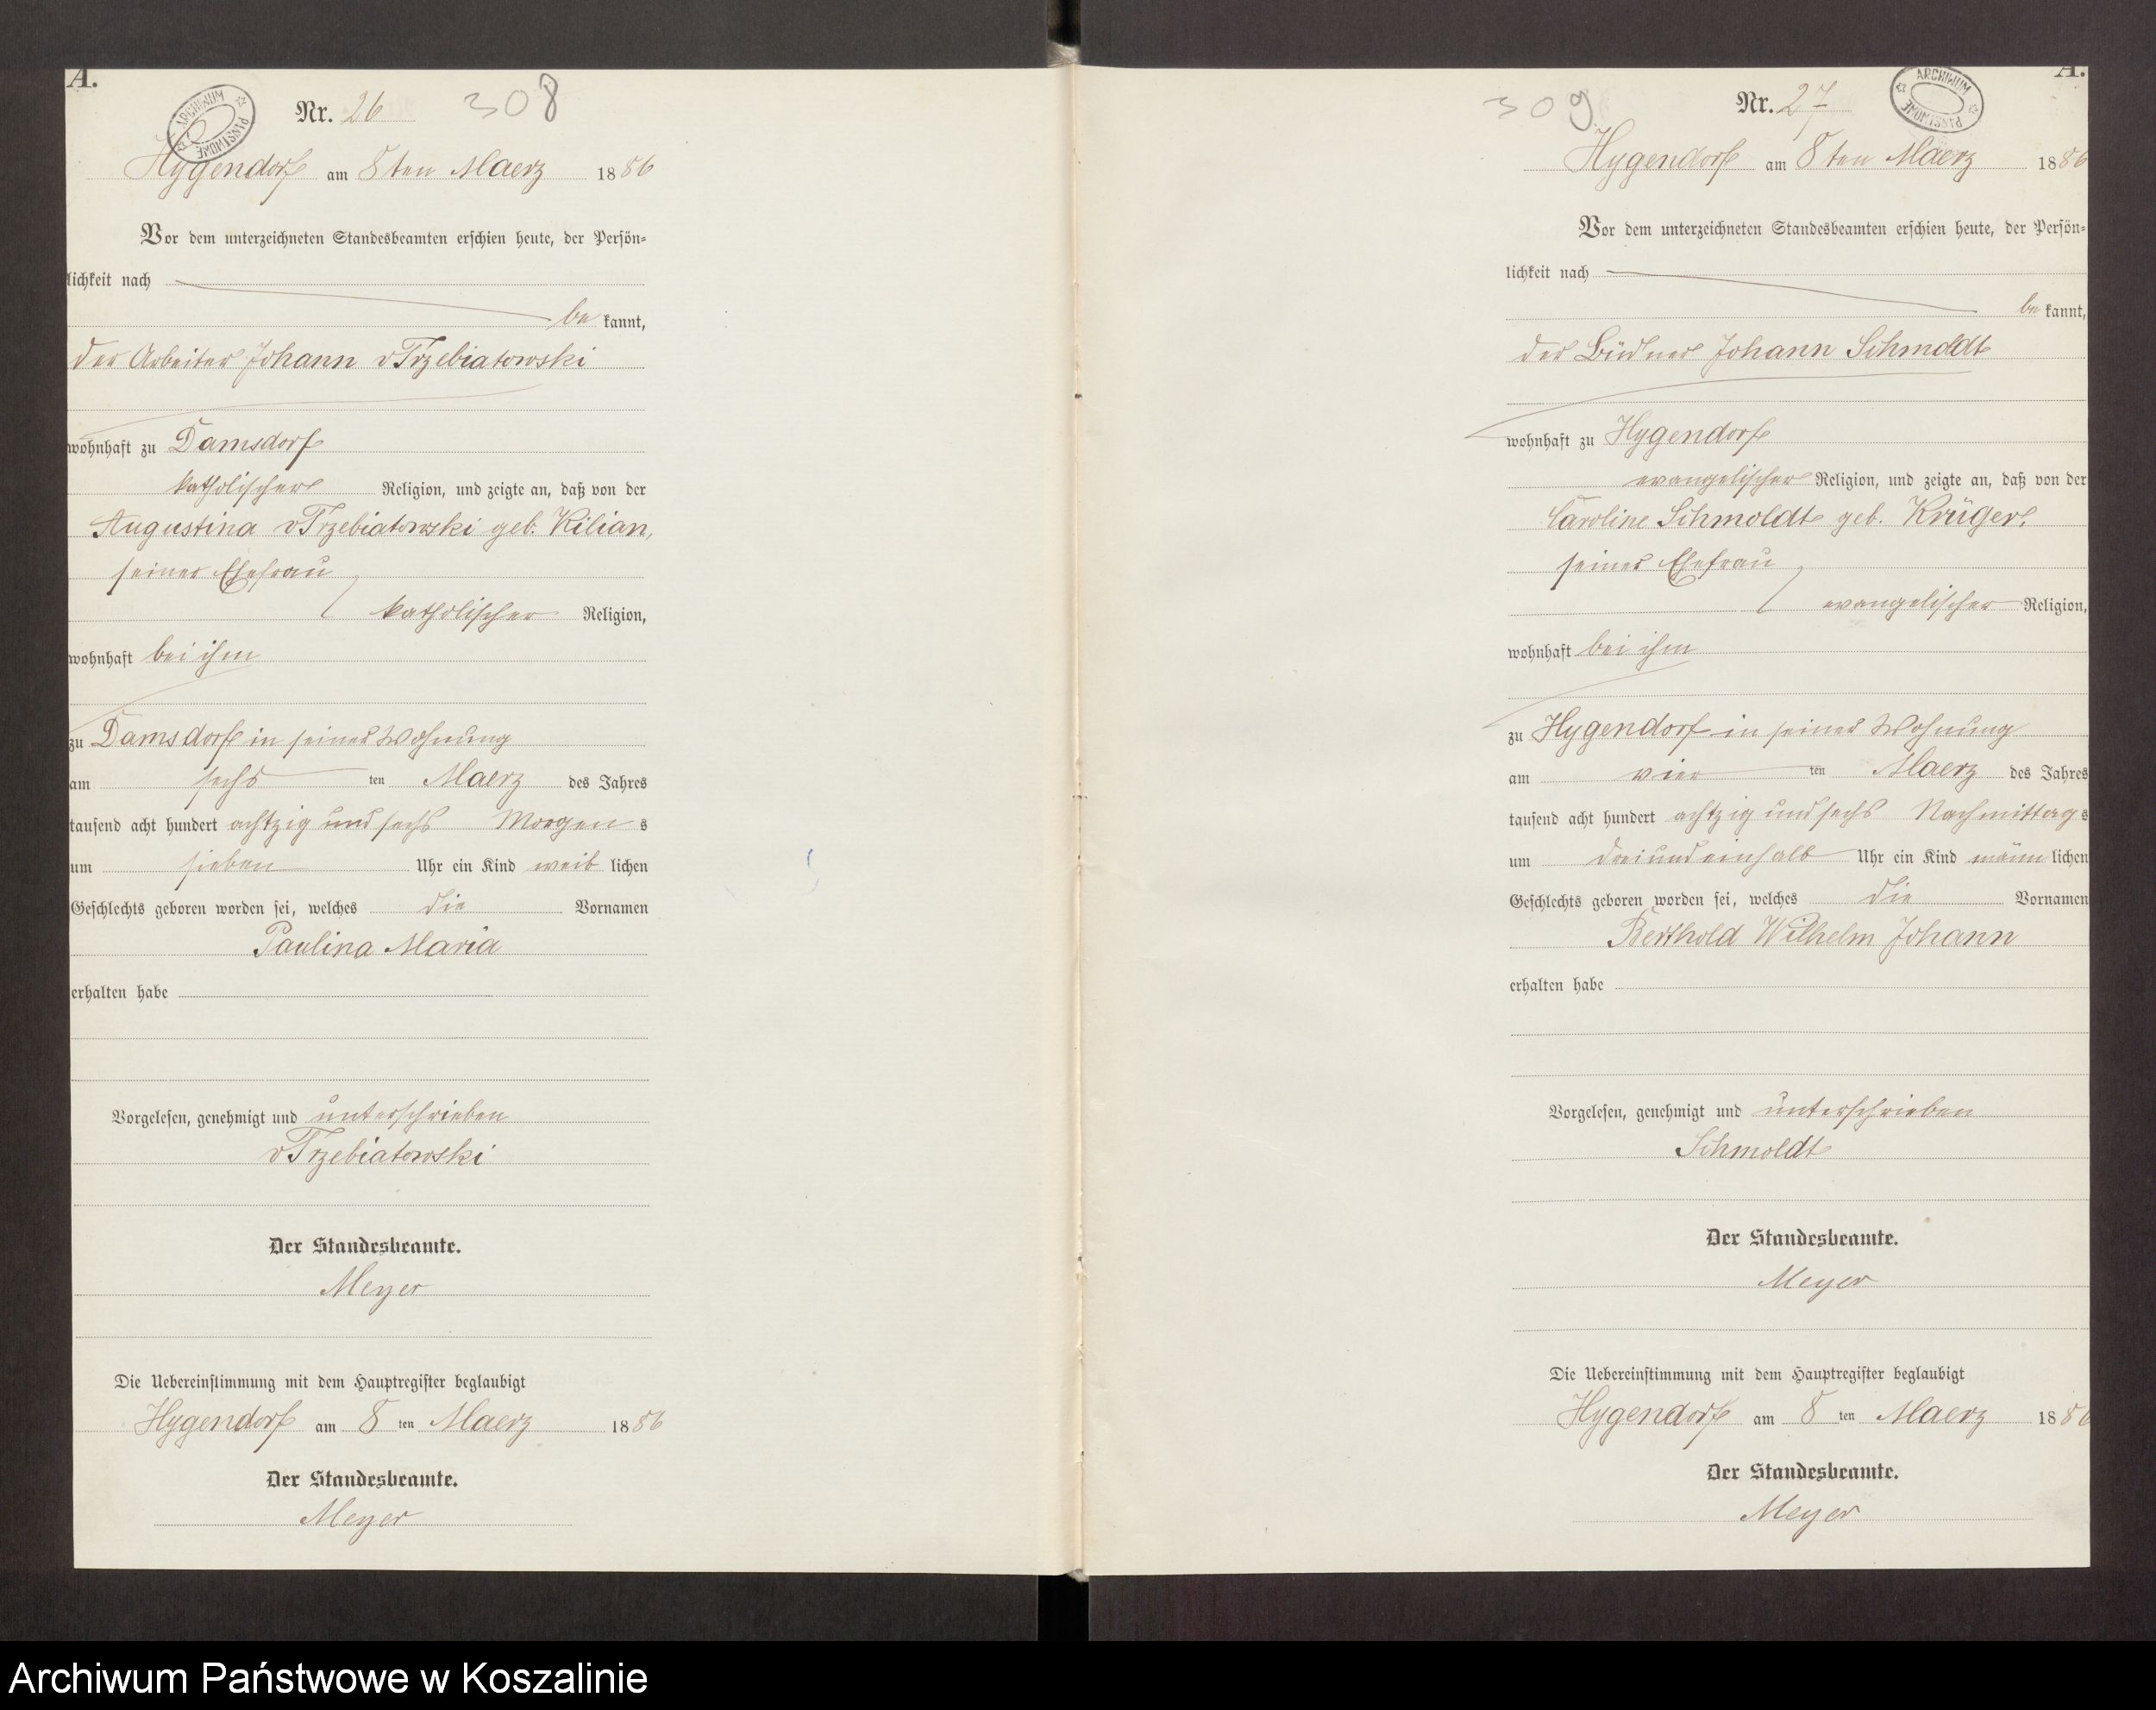 A.
Nr. 26 308
ARCHIWUM PAŃSTWOWE
Hygendorf am 8ten Maerz 1886
Vor dem unterzeichneten Standesbeamten erschien heute, der Persön-
lichkeit nach
be kannt,
der Arbeiter Johann vTrzebiatowski
wohnhaft zu Damsdorf
katholischer Religion, und zeigte an, daß von der
Augustina vTrzebiatowski geb. Kilian,
seiner Ehefrau
katholischer Religion,
wohnhaft bei ihm
zu Damsdorf in seiner Wohnung
am sechs ten Maerz des Jahres
tausend acht hundert achtzig und sechs Morgen s
um sieben Uhr ein Kind weib lichen
Geschlechts geboren worden sei, welches die Vornamen
Paulina Maria
erhalten habe
Vorgelesen, genehmigt und unterschrieben
vTrzebiatowski
Der Standesbeamte.
Meyer
Die Uebereinstimmung mit dem Hauptregister beglaubigt
Hygendorf am 8 ten Maerz 1886
Der Standesbeamte.
Meyer
A.
309 Nr. 27
ARCHIWUM PAŃSTWOWE
Hygendorf am 8ten Maerz 1886
Vor dem unterzeichneten Standesbeamten erschien heute, der Persön-
lichkeit nach
be kannt,
der Büdner Johann Schmddt
wohnhaft zu Hygendorf
evangelischer Religion, und zeigte an, daß von der
Caroline Schmoldt geb. Krüger,
seiner Ehefrau
evangelischer Religion,
wohnhaft bei ihm
zu Hygendorf in seiner Wohnung
am vier ten Maerz des Jahres
tausend acht hundert achtzig und sechs Nachmittag s
um drei und einhalb Uhr ein Kind männ lichen
Geschlechts geboren worden sei, welches die Vornamen
Berthold Wilhelm Johann
erhalten habe
Vorgelesen, genehmigt und unterschrieben
Schmoldt
Der Standesbeamte.
Meyer
Die Uebereinstimmung mit dem Hauptregister beglaubigt
Hygendorf am 8 ten Maerz 1886
Der Standesbeamte.
Meyer
Archiwum Państwowe w Koszalinie